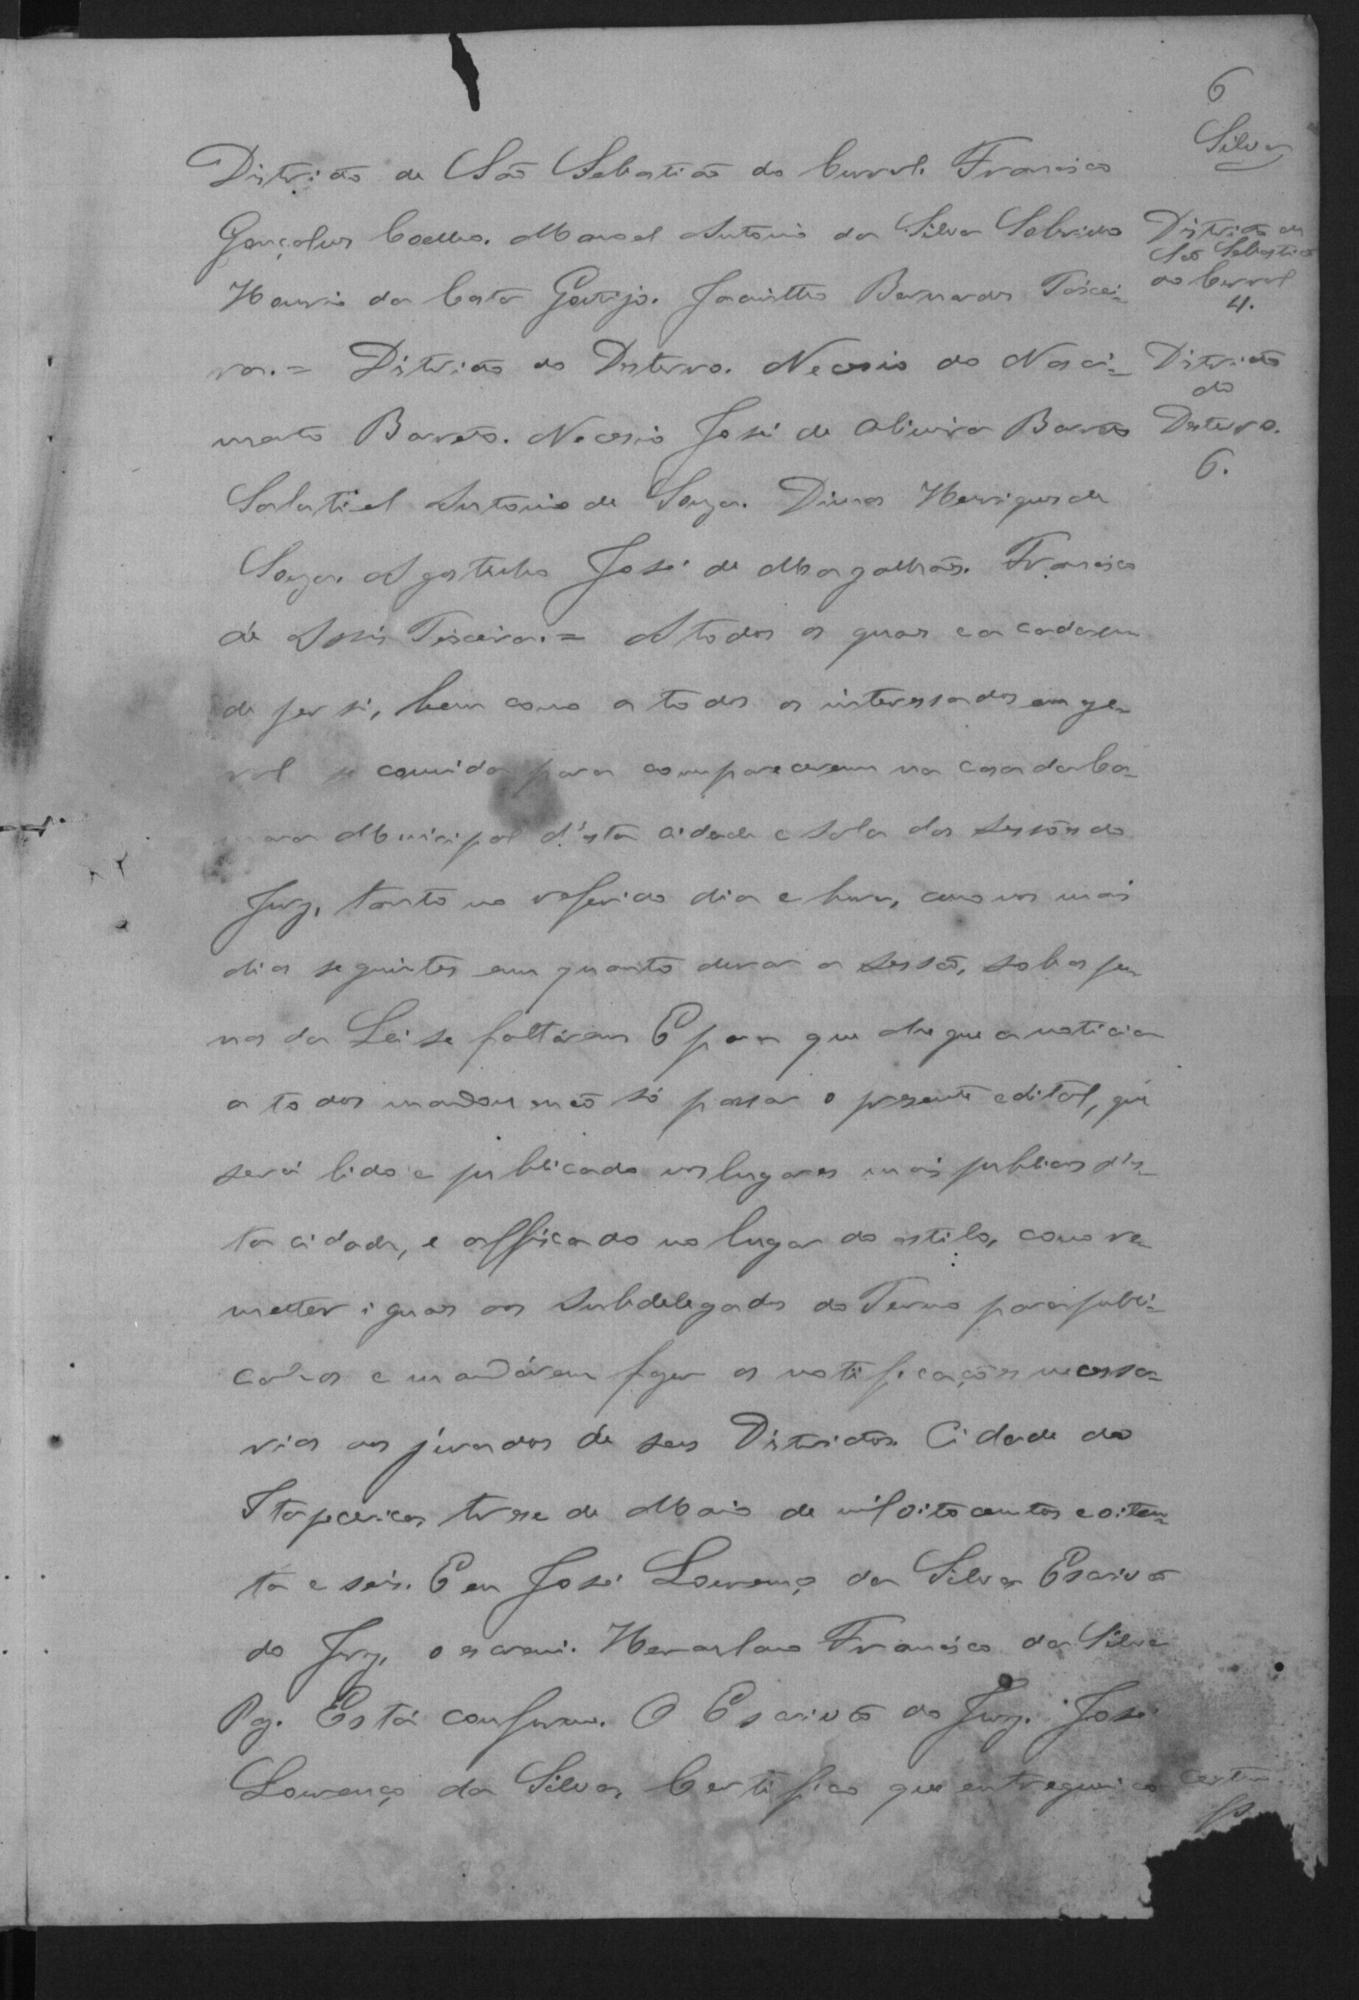 6
Silva
Districto de São Sebastião do Curral. Francisco
Gonçalves Coelho. Manoel Antonio da Silva Sobrinho
Districto de
São Sebastião
do Curral
4.
da Costa Gontijo. Jacintho Bernardes Teixei-
ra. = Districto do Desterro. Necesio do Nasci-
Districto
do
Desterro.
6.
mento Barreto. Necesio José de Oliveira Barreto
Salatiel Antonio de Souza. Dimas Henriques de
Souza. Agostinho José de Magalhães. Francisco
de Assis Teixeira. = A todos os quaes e a cada um
de per si, bem como a todos os interessados em ge-
ral se convida para comparecerem na casa da Ca-
mara Municipal d'esta cidade e sala das sessões do
Jury, tanto no referido dia e hora, como nos mais
dias seguintes em quanto durar a sessão, sob as pe-
nas da Lei se faltárem E para que chegue a noticia
a todos mandou não só passar o presente edital, que
será lido e publicado nos lugares mais publicos d'es-
ta cidade, e affixado no lugar do estilo, como re-
metter iguaes aos Subdelegados do Termo para publi-
cal-os e mandárem fazer as notificações necessa-
rias aos jurados de seus Districtos. Cidade de
Itapecerica, treze de Maio de mil oitocentos e oiten-
ta e seis. Eu José Lourenço da Silva Escrivão
do Jury, o escrevi. Francisco da Silva
Está conforme. O Escrivão do Jury. José
Lourenço da Silva. Certifico que entreguei